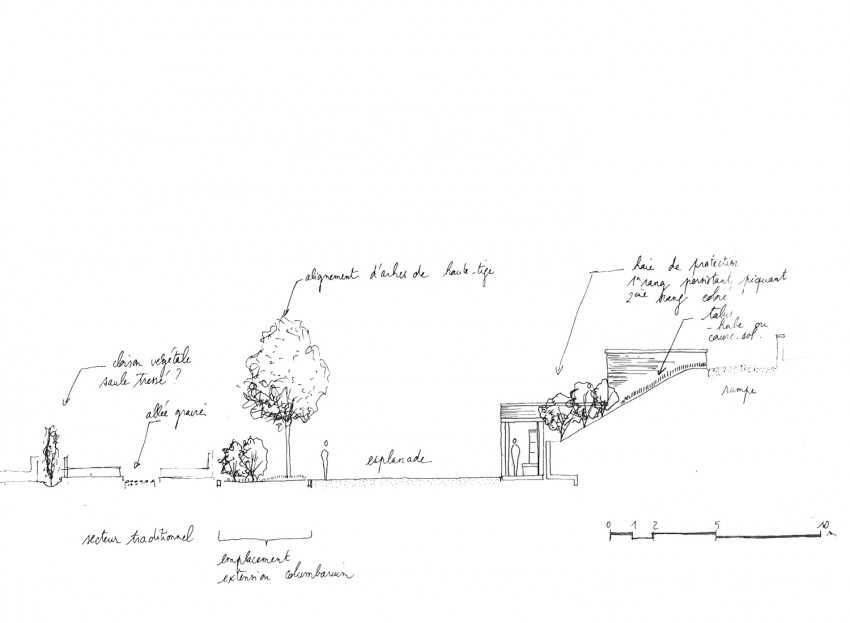 alignement d'arbres de haute-tige
haie de protection
1er rang persistant piquant
2ème rang coloré
talus
- herbe ou
couvre-sol.
cloison végétale
saule tressé ?
allée gravier
rampe
esplanade
secteur traditionnel
emplacement
extension columbarium
0 1 2 5 10
m